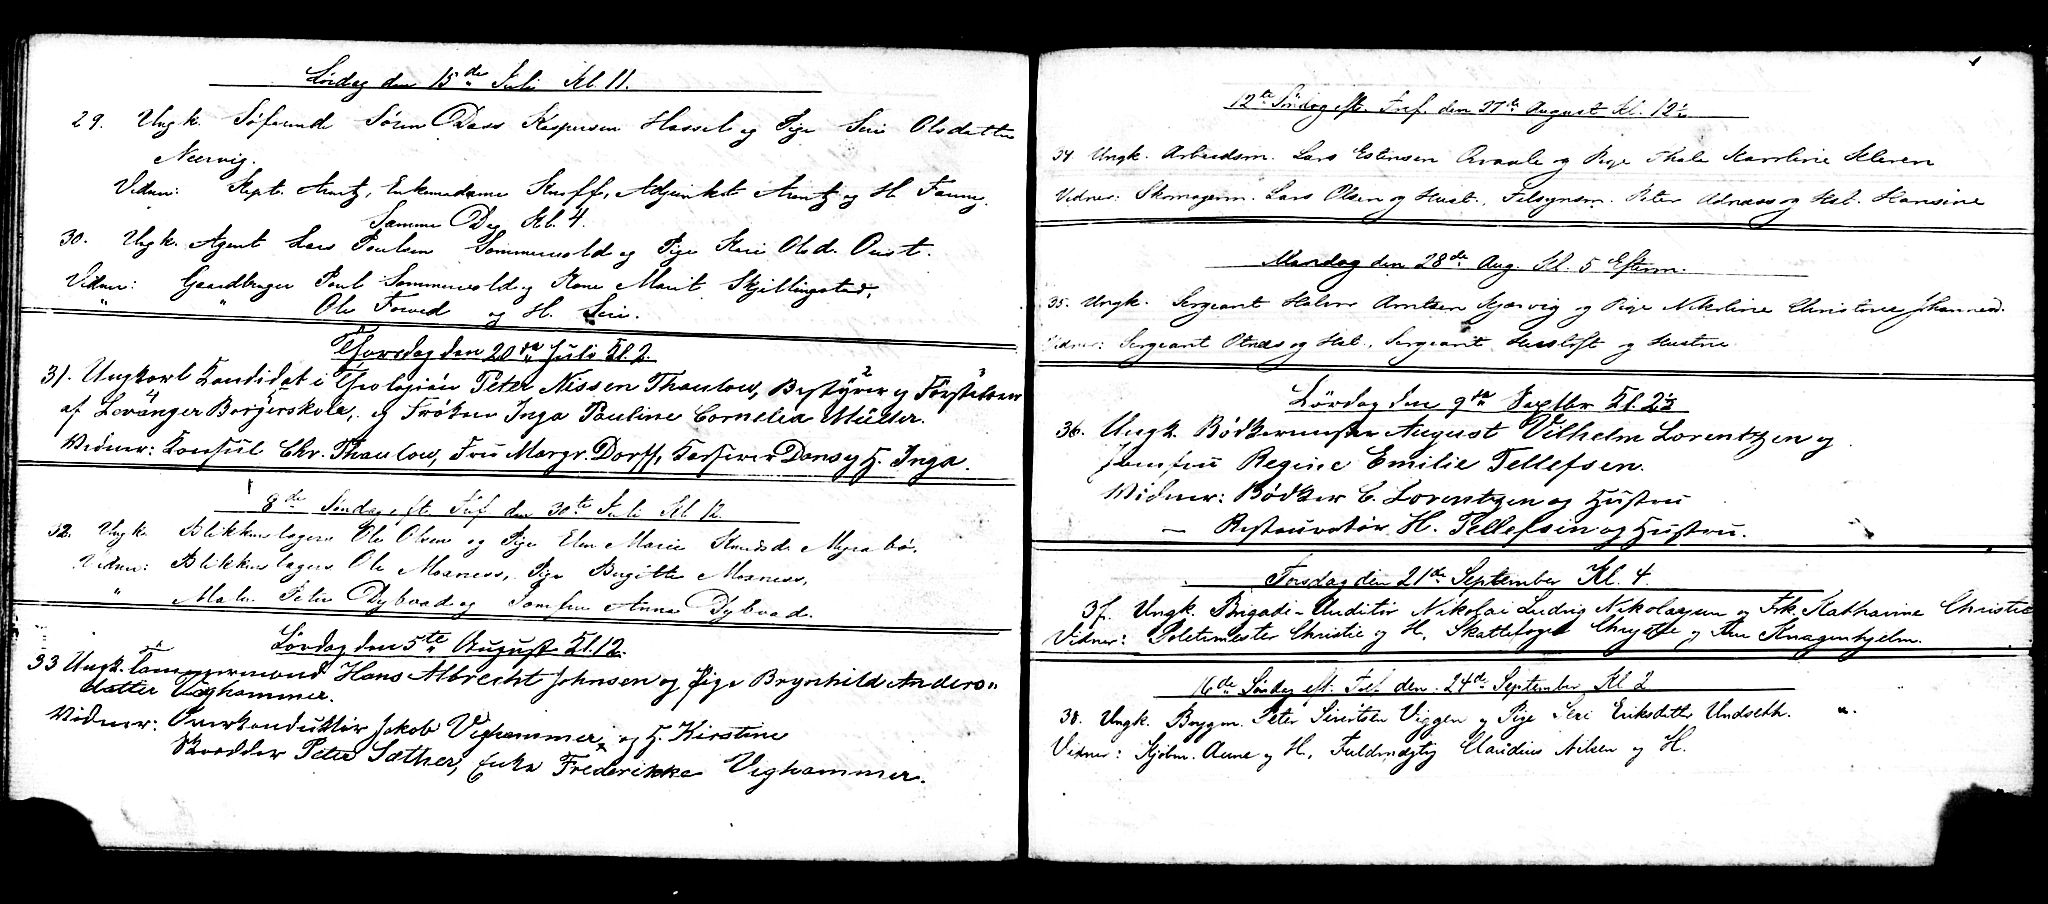 Lørdag den 15de Juli Kl. 11.
29. Ungk. Søfarende Søren Dass Kaspersen Hassel og Pige Seri Olsdatter
Neervig.
Vidner: Kapt. Arntz, Enkemadame Knoff, Adjunkt Arntz og H. Fanny.
Samme Dag Kl. 4.
30. Ungk. Agent Lars Paulsen Sommervold og Pige Kari Olsd. Qvist.
Vidner: Gaardbruger Paul Sommervold og Kone Marit Skjillingstad,
" " Ole og H. Seri.
Thorsdag den 20de Juli Kl. 2.
31. Ungkarl Kandidat i Theologien Peter Nissen Thaulow, Bestyrer og Forstander
af Levanger Borgerskole, og Frøken Inga Pauline Cornelia Müller.
Vidner: Konsul Chr. Thaulow, Fru Margr. Dorff, Kasserer Dons og H. Inga.
8de Søndag eft. Tref. den 30te Juli Kl. 12.
32. Ungk. Blikkenslager Ole Olsen og Pige Elen Marie Knudsd. Myrabø.
Vidner: Blikkenslager Ole Moaness, Pige Birgitte Moaness,
" Maler Peter Dybvad og Jomfru Anna Dybvad.
Lørdag den 5te August Kl. 12.
33 Ungk. Tømmermand Hans Albrecht Johnsen og Pige Brynhild Anders-
datter Veghammer.
Vidner: Overkonduktør Jakob Veghammer og H. Kirstine
Skrædder Peter Sæther, Enke Frederikke Veghammer.
12te Søndag eft. Tref. den 27de August Kl. 12½
34 Ungk. Arbeidsm. Lars Estensen og Pige Thale Karoline Kleven
Vidner: Skomagerm. Lars Olsen og Hust., Tilsynsm. Peter Udnæss og Hst. Hansine
Mandag den 28de Aug. Kl. 5 Efterm.
35. Ungk. Sergeant Halvor Arntsen Kjærvig og Pige Nikoline Christine Johannesd.
Vidner: Sergeant Otnæs og Hst., Sergeant og Hustru.
Lørdag den 9de Septbr Kl. 2½
36. Ungk. Bødkermester August Vilhelm Lorentzen og
Jomfru Regine Emilie Tellefsen.
Vidner: Bødker C. Lorentzen og Hustru
— Restauratør H. Tellefsen og Hustru.
Torsdag den 21de September Kl. 4
37. Ungk. Brigade-Auditør Nikolai Ludvig Nikolaysen og Frk. Kathrine Christie
Vidner: Politimester Christie og H., Skattefoged og Fru Knagenhjelm.
16de Søndag eft. Tref den 24de September Kl 2
38. Ungk. Brygm. Peter Sivertsen Viggen og Pige Seri Eriksdatter Undseth.
Vidner: Kjøbm. Aune og H., Fuldmægtig Claudius Nilsen og H.